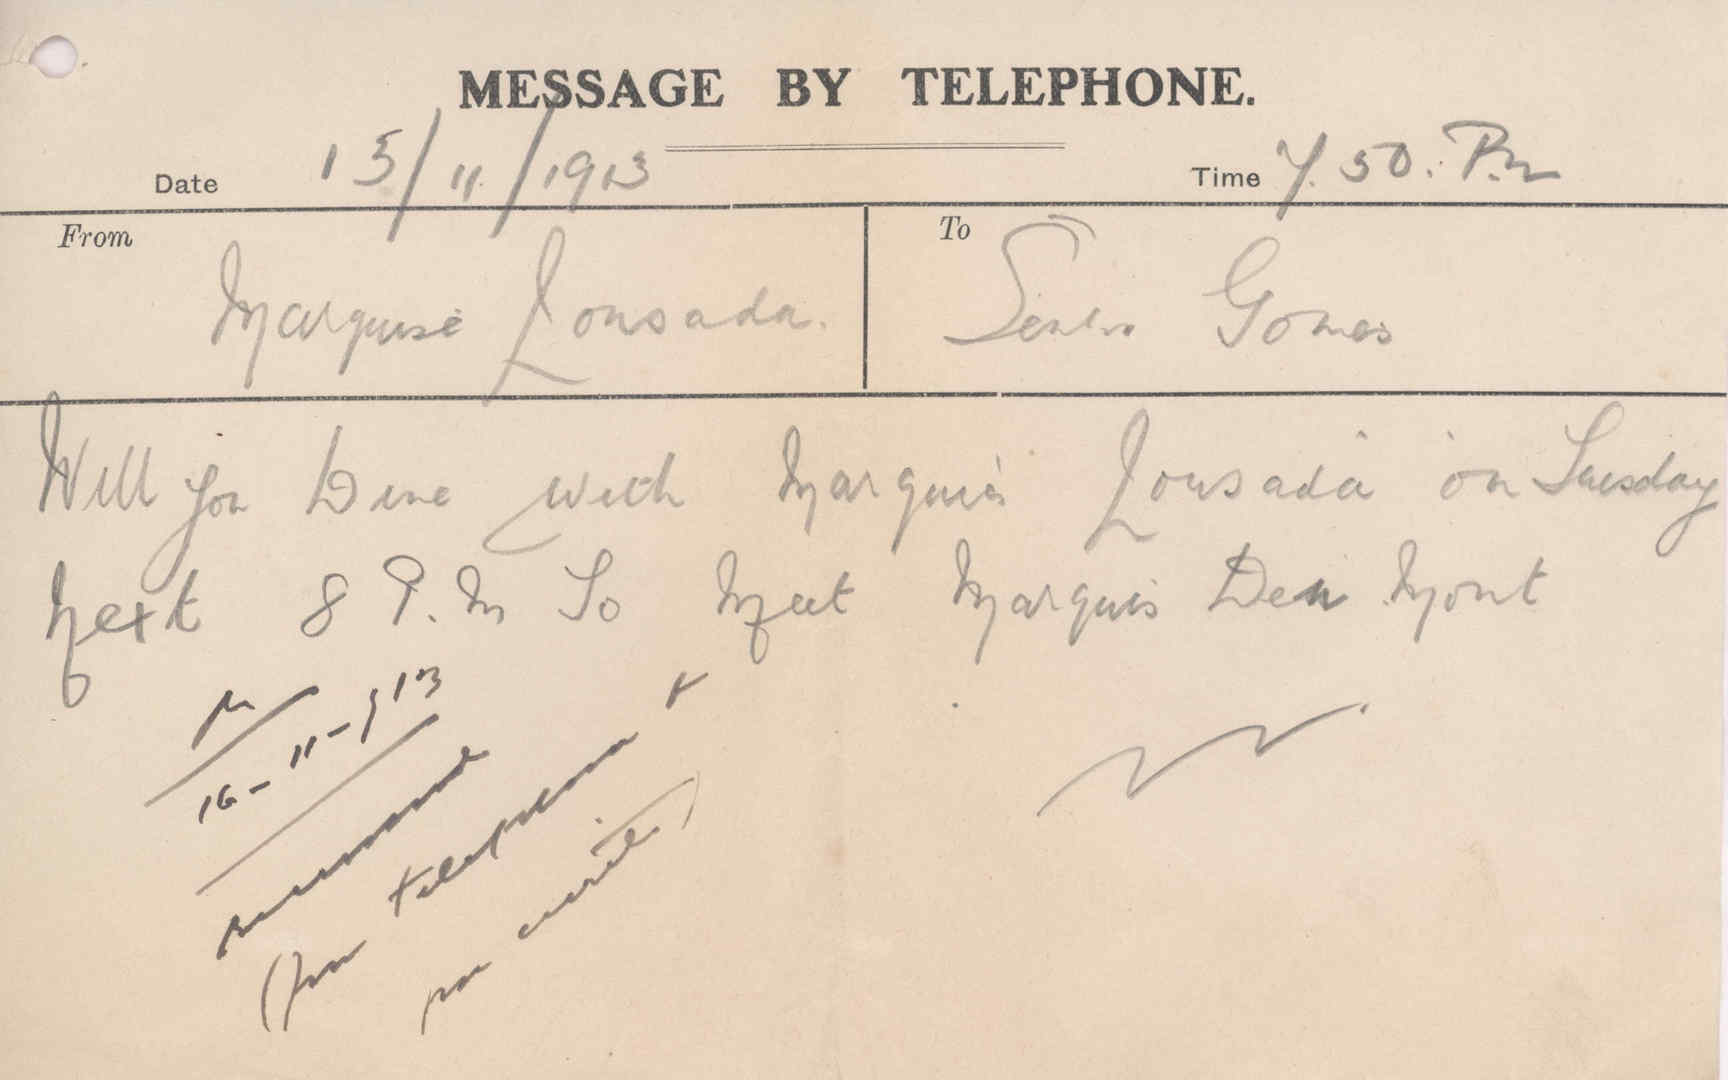 MESSAGE BY TELEPHONE.
Date 15/11/1913 Time 7.50. P.m
From To
Marquise Lousada. Gomes
Will you Dine with Marquis Lousada on Tuesday
Next 8 P.M To Meet Marquis Den Mont
R
16-11-913
(por telephone e
por escrito)